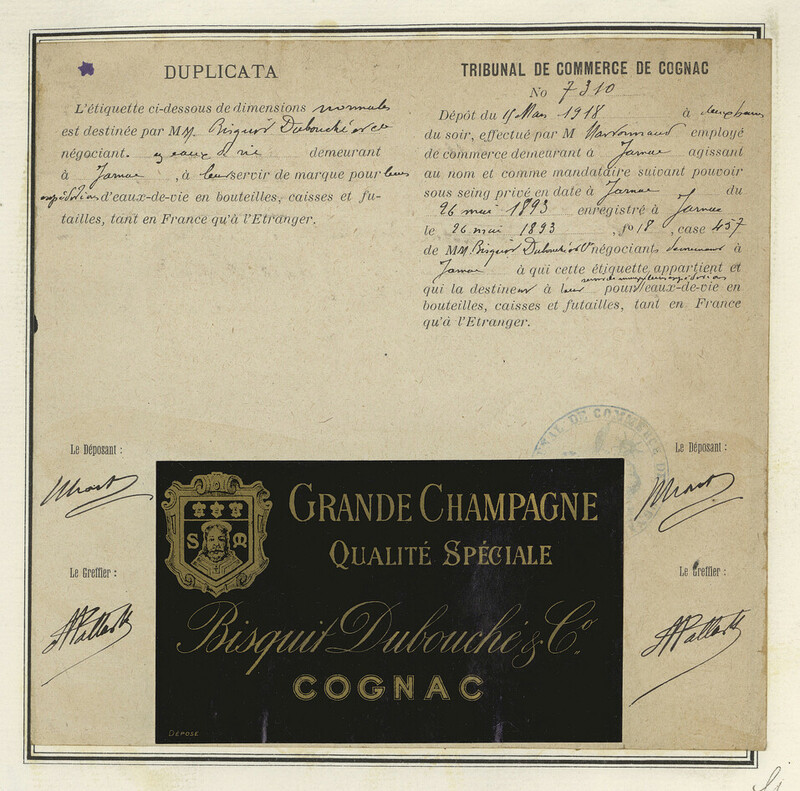 DUPLICATA
L'étiquette ci-dessous de dimensions normales
est destinée par MM. Bisquit Dubouché et Cie
négociant. eaux de vie demeurant
à Jarnac, à leur servir de marque pour leurs
expéditions d'eaux-de-vie en bouteilles, caisses et fu-
tailles, tant en France qu'à l'Etranger.
TRIBUNAL DE COMMERCE DE COGNAC
No 7310
Dépôt du 15 Mars 1918 à deux heures
du soir, effectué par M employé
de commerce demeurant à Jarnac agissant
au nom et comme mandataire suivant pouvoir
sous seing privé en date à Jarnac du
26 mai 1893 enregistré à Jarnac
le 26 mai 1893, fo 18, case 457
de MM. Bisquit Dubouché et Cie négociants demeurant à
Jarnac à qui cette étiquette appartient et
qui la destinent à leur
pour eaux-de-vie en
bouteilles, caisses et futailles, tant en France
qu'à l'Etranger.
Le Déposant :
Le Greffier :
Le Déposant :
Le Greffier :
TRIBUNAL DE COMMERCE DE
GRANDE CHAMPAGNE
QUALITÉ SPÉCIALE
S M
Bisquit Dubouché & Co.
COGNAC
DÉPOSÉ